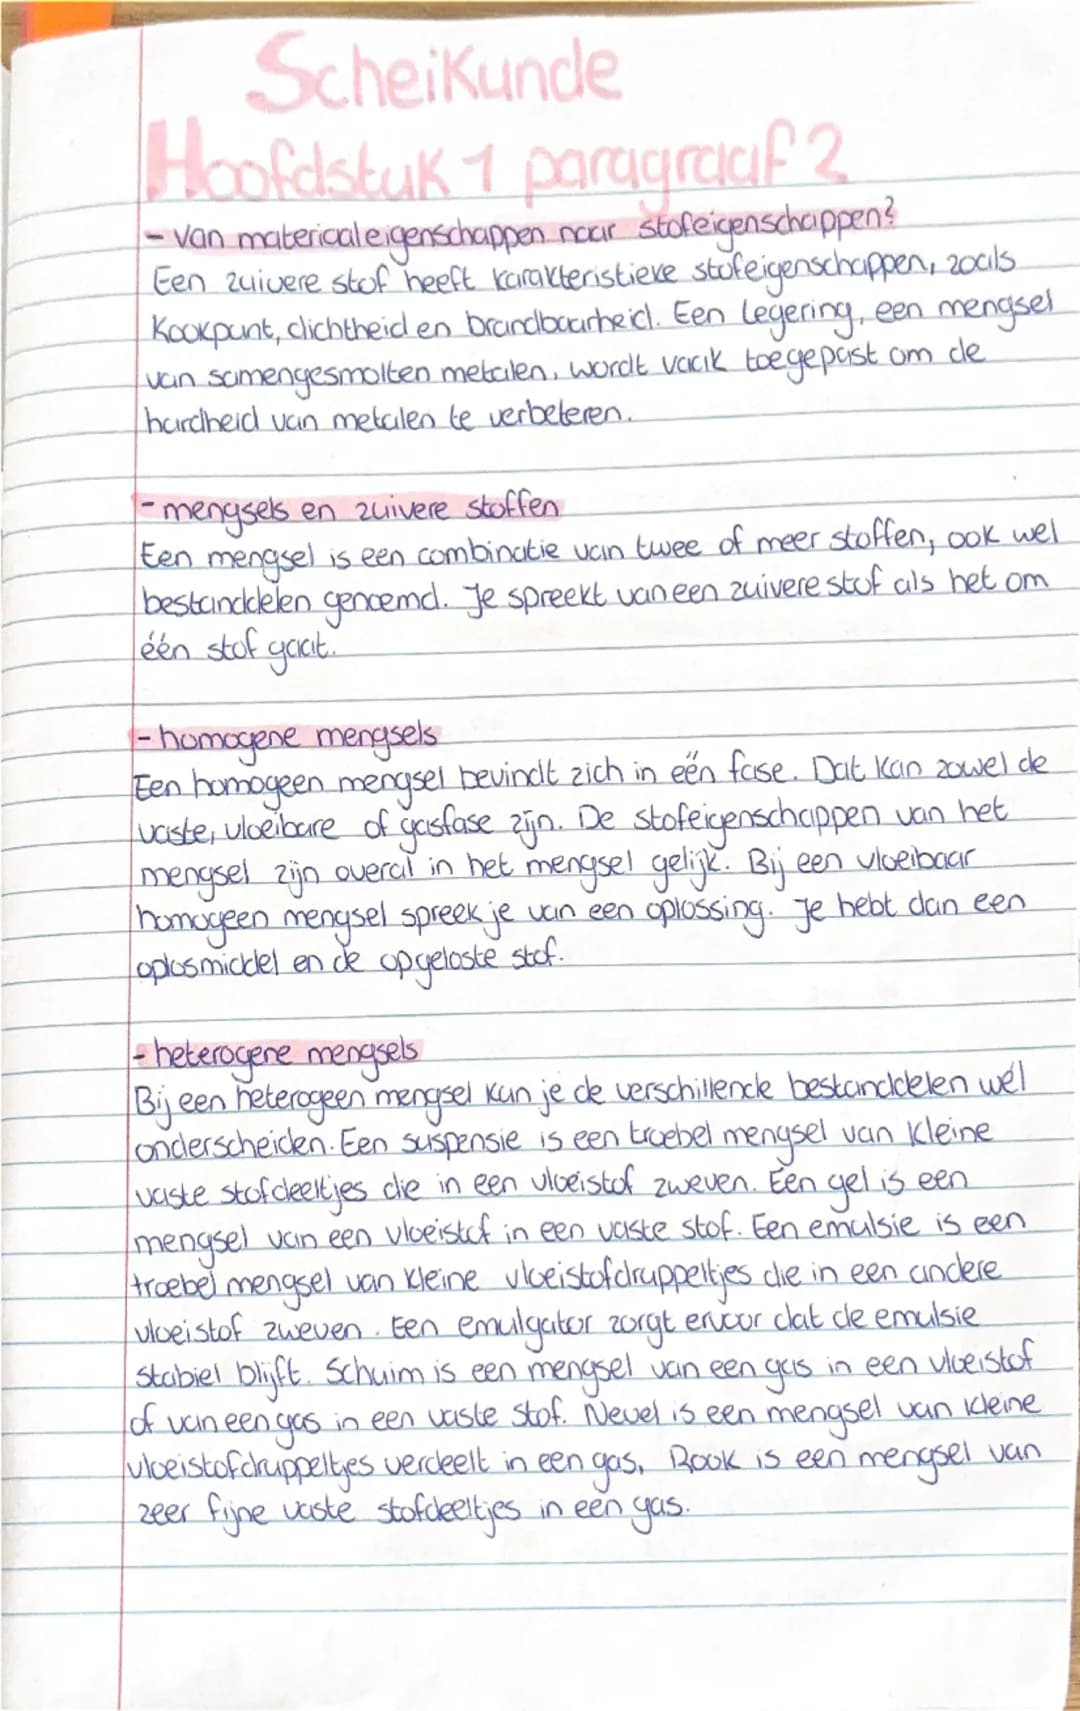 Scheikunde
Hoofdstuk 1 paragraaf 2
- van materiaaleigenschappen naar stofeigenschappen?
Een zuivere stof heeft karakteristieke stofeigenschappen, zoals
kookpunt, dichtheid en brandbaarheid. Een legering, een mengsel
van samengesmolten metalen, wordt vaak toegepast om de
hardheid van metalen te verbeteren.
- mengsels en zuivere stoffen
Een mengsel is een combinatie van twee of meer stoffen, ook wel
bestanddelen genoemd. Je spreekt van een zuivere stof als het om
één stof gaat.
- homogene mengsels
Een homogeen mengsel bevindt zich in één fase. Dat kan zowel de
vaste, vloeibare of gasfase zijn. De stofeigenschappen van het
mengsel zijn overal in het mengsel gelijk. Bij een vloeibaar
homogeen mengsel spreek je van een oplossing. Je hebt dan een
oplosmiddel en de opgeloste stof.
- heterogene mengsels
Bij een heterogeen mengsel kun je de verschillende bestanddelen wél
onderscheiden. Een suspensie is een troebel mengsel van kleine
vaste stofdeeltjes die in een vloeistof zweven. Een gel is een
mengsel van een vloeistof in een vaste stof. Een emulsie is een
troebel mengsel van kleine vloeistofdruppeltjes die in een andere
vloeistof zweven. Een emulgator zorgt ervoor dat de emulsie
stabiel blijft. Schuim is een mengsel van een gas in een vloeistof
of van een gas in een vaste stof. Nevel is een mengsel van kleine
vloeistofdruppeltjes verdeelt in een gas. Rook is een mengsel van
zeer fijne vaste stofdeeltjes in een gas.